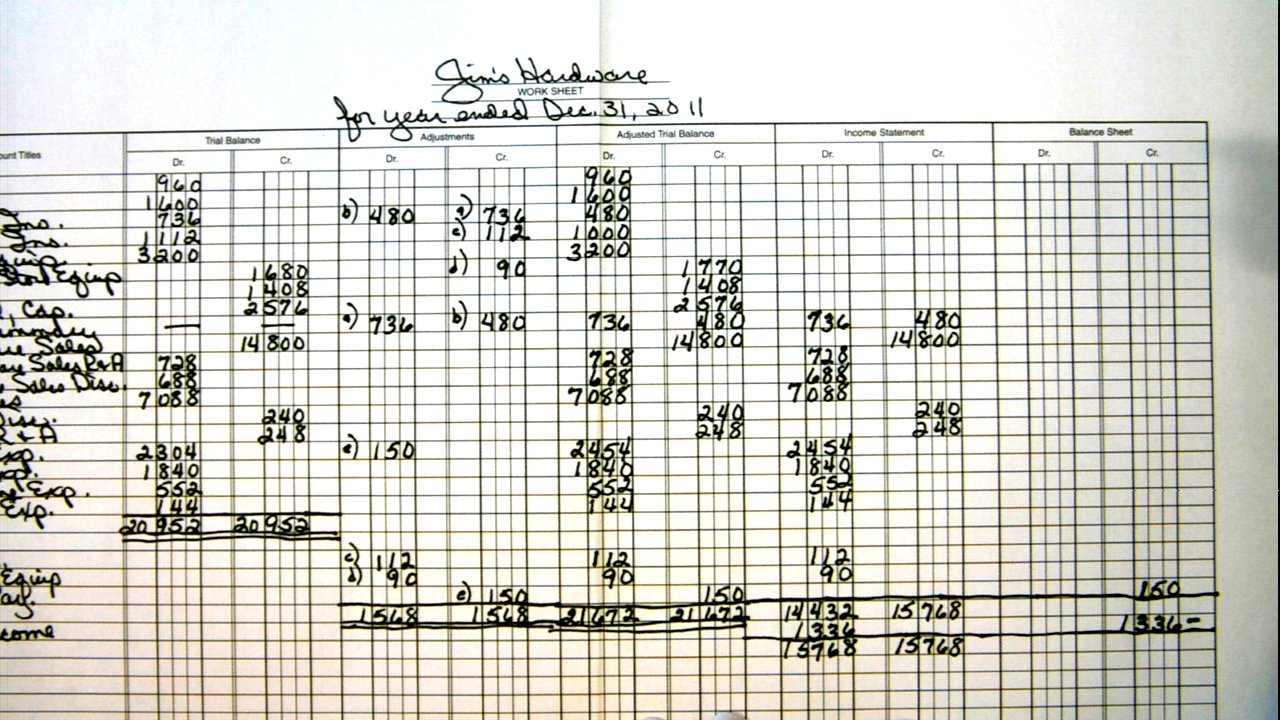 Jim's Hardware
WORK SHEET
for year ended Dec. 31, 2011
unt Titles Trial Balance Adjustments Adjusted Trial Balance Income Statement Balance Sheet
Dr. Cr. Dr. Cr. Dr. Cr. Dr. Cr. Dr. Cr.
960 960
1600 1600
Ins. 736 b) 480 a) 736 480
Ins. 1112 c) 112 1000
3200 3200
Store Equip 1680 d) 90 1770
1408 1408
, Cap. 2576 2576
— — a) 736 b) 480 736 480 736 480
Sales 14800 14800 14800
Sales R+A 728 728 728
Sales Disc. 688 688 688
7088 7088 7088
Disc. 240 240 240
R + A 248 248 248
Exp. 2304 e) 150 2454 2454
xp. 1840 1840 1840
Exp. 552 552 552
Exp. 144 144 144
20952 20952
c) 112 112 112
Equip d) 90 90 90
ay. e) 150 150 150
1568 1568 21672 21672 14432 15768
come 1336 1336-
15768 15768